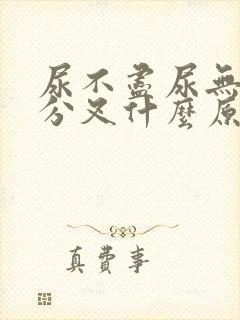 尿不盡尿無
分叉什麼原
真費事